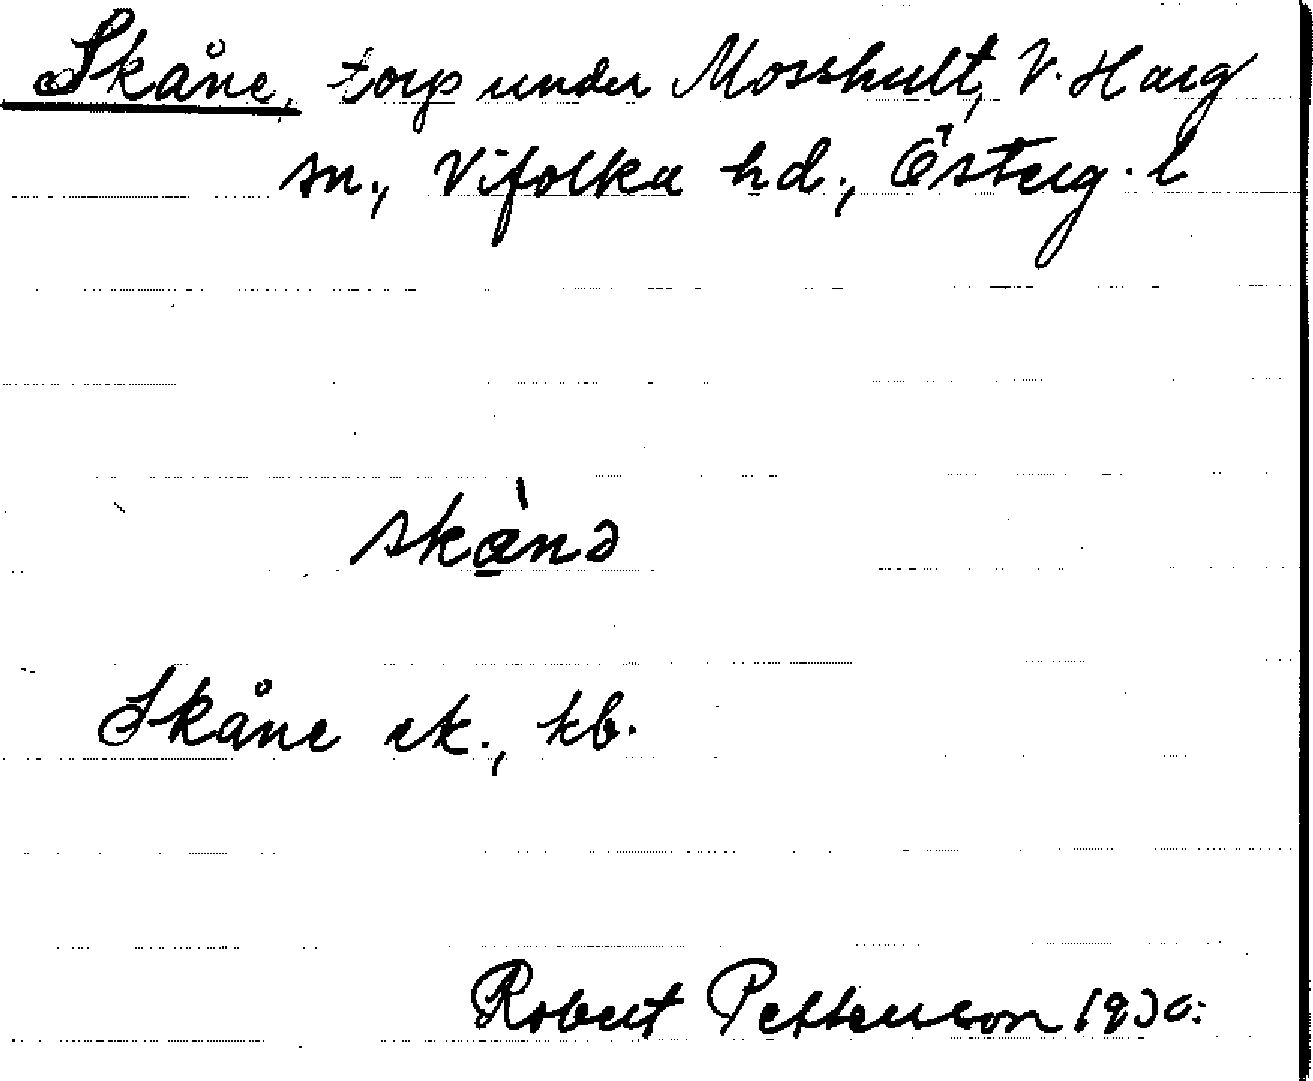 Skåne, torp under Mosshult, V. Harg
sn., Vifolka hd., Österg. l
skànə
Skåne ek., kb.
Robert Pettersson 1930.